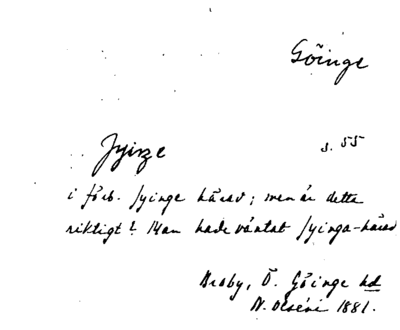 Göinge
s. 55
i förb. jyinge härad; men är detta
riktigt? Man hade väntat jyinga-härad
Broby, Ö. Göinge hd
N. Olséni 1881.